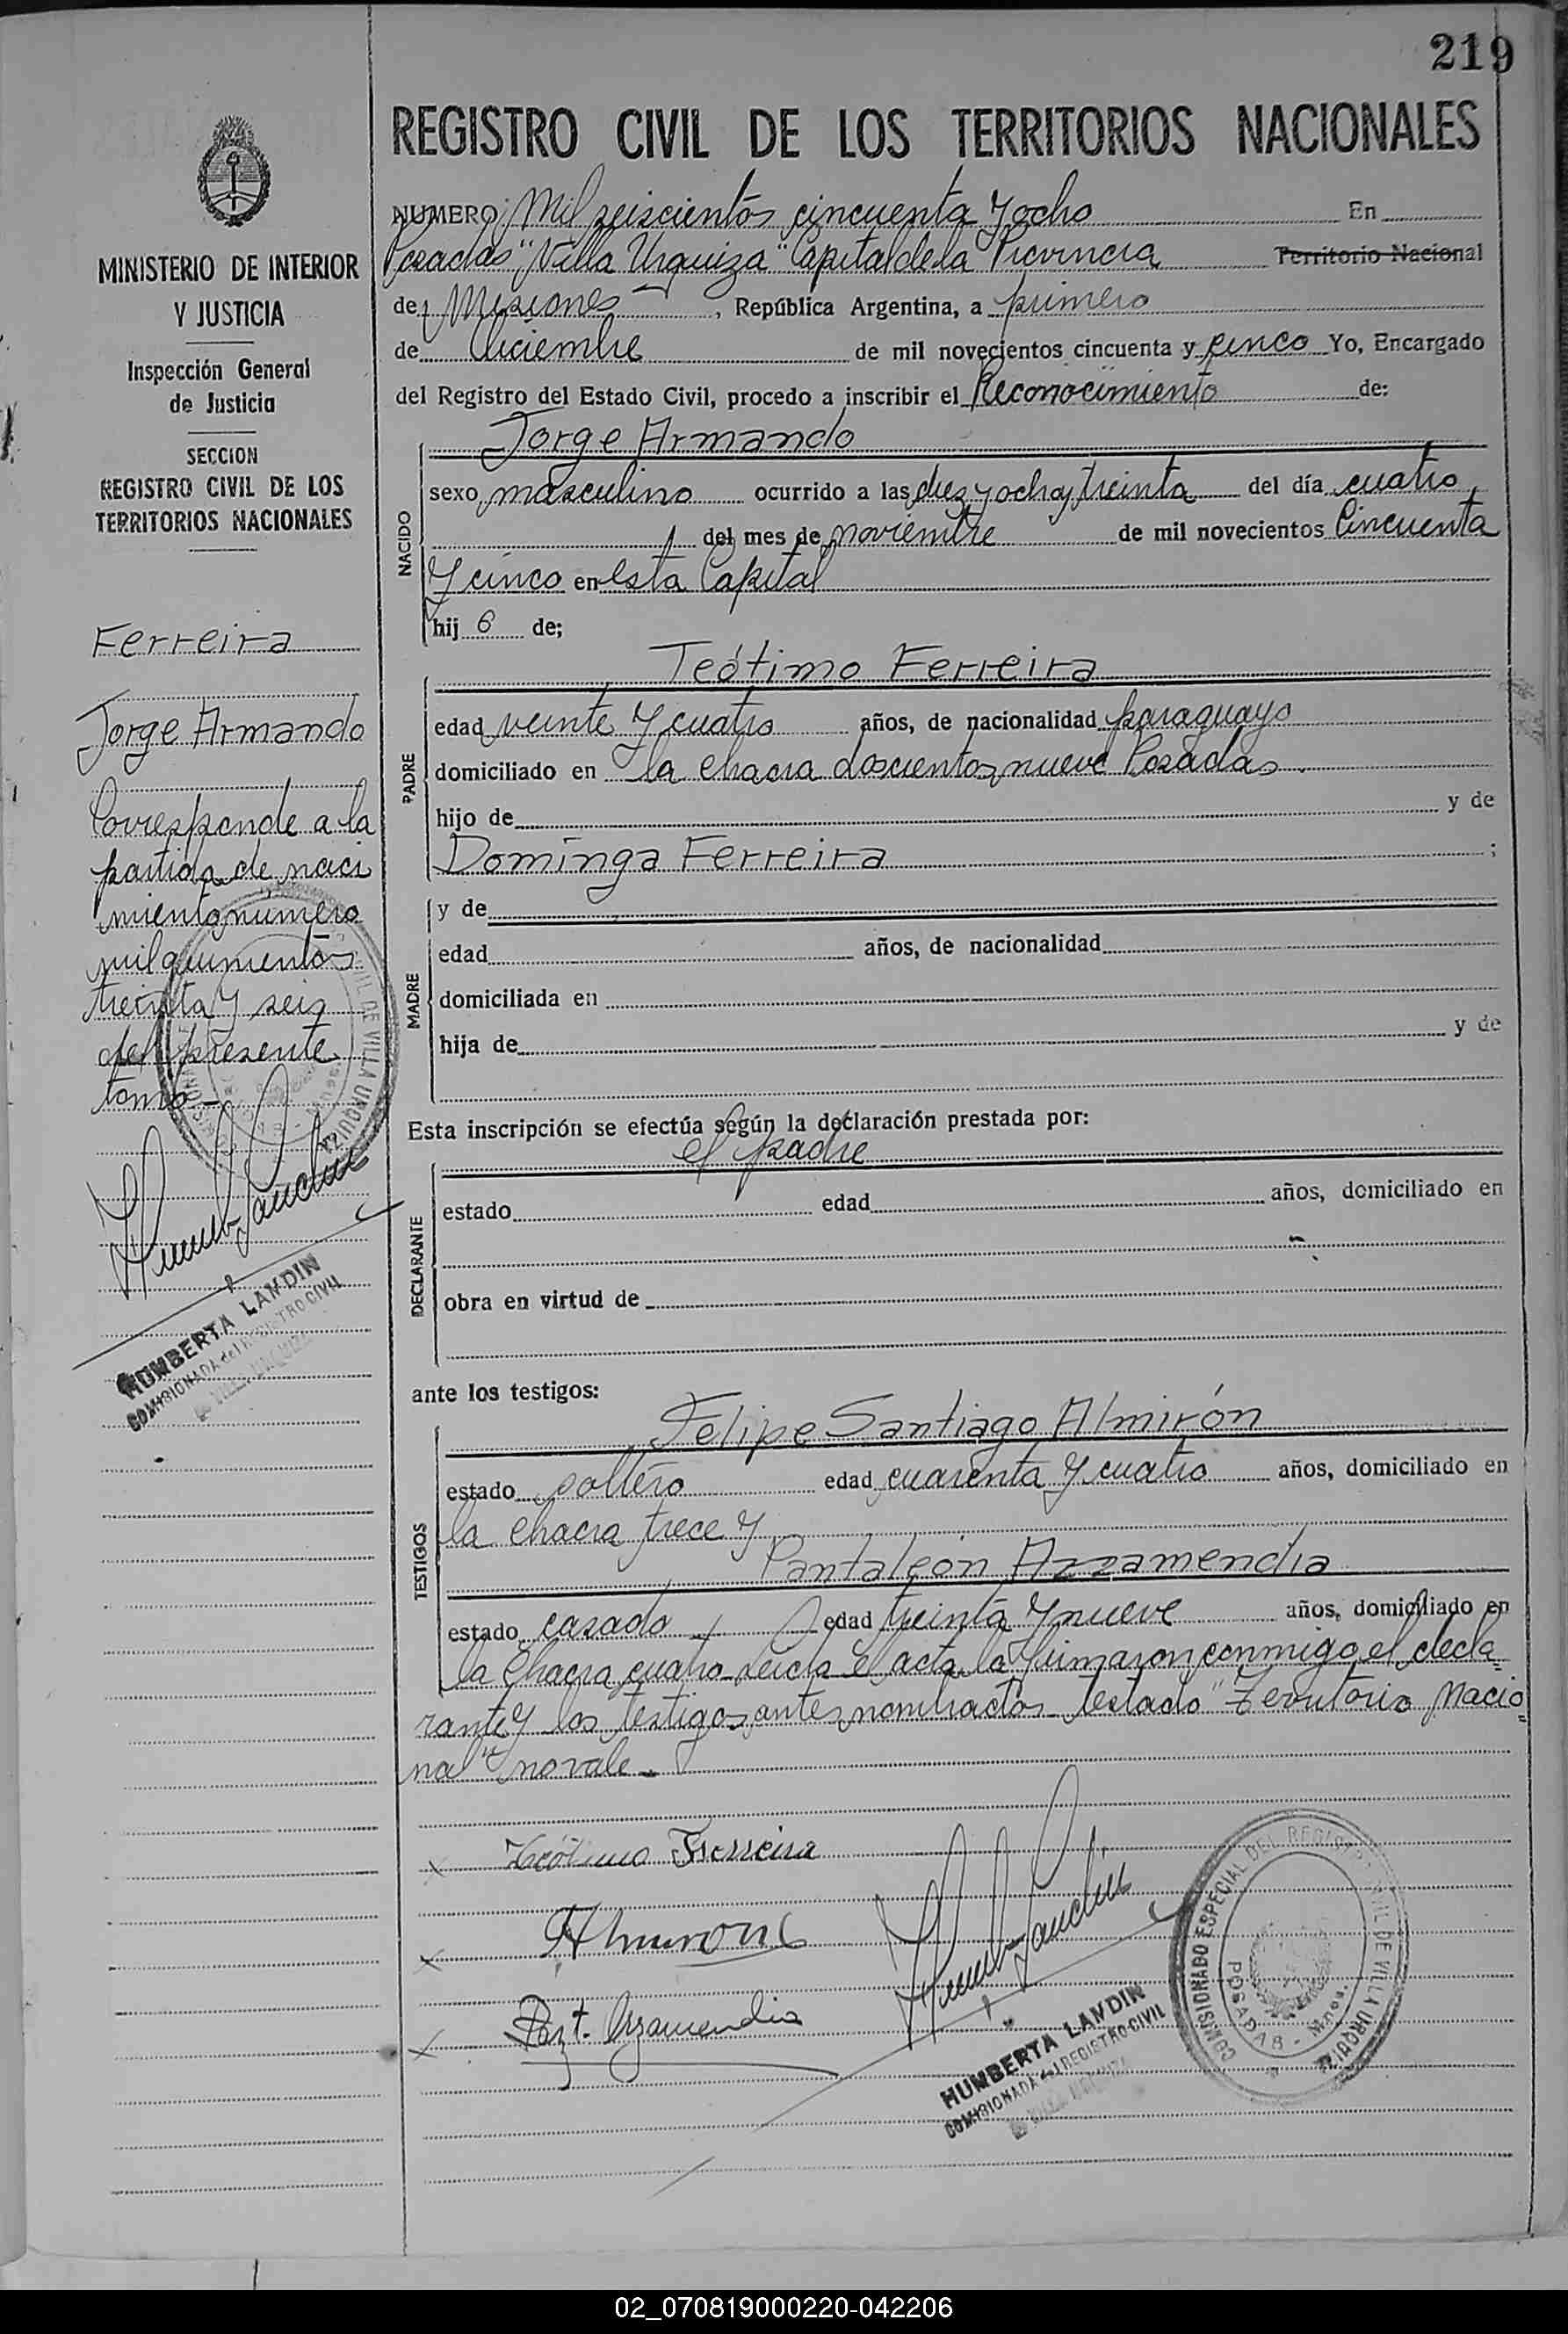 219
REGISTRO CIVIL DE LOS TERRITORIOS NACIONALES
MINISTERIO DE INTERIOR
Y JUSTICIA
Inspección General
de Justicia
SECCION
REGISTRO CIVIL DE LOS
TERRITORIOS NACIONALES
Ferreira
Jorge Armando
Corresponde a la
partida de naci
miento número
mil quinientos
treinta y seis
del presente
tomo.-
HUMBERTA LANDIN
COMISIONADA del REGISTRO CIVIL
NUMERO: Mil seiscientos cincuenta y ocho En
Posadas "Villa Urquiza" Capital de la Provincia Territorio Nacional
de Misiones, República Argentina, a primero
de Diciembre de mil novecientos cincuenta y cinco Yo, Encargado
del Registro del Estado Civil, procedo a inscribir el Reconocimiento de:
NACIDO
Jorge Armando
sexo masculino ocurrido a las diez y ocho y treinta del día cuatro
del mes de noviembre de mil novecientos Cincuenta
y cinco en esta Capital
hij o de;
PADRE
Teótimo Ferreira
edad veinte y cuatro años, de nacionalidad paraguayo
domiciliado en la chacra doscientos nueve Posadas.
hijo de y de
Dominga Ferreira ;
MADRE
y de
edad años, de nacionalidad
domiciliada en
hija de y de
Esta inscripción se efectúa según la declaración prestada por:
DECLARANTE
el padre
estado edad años, domiciliado en
obra en virtud de
ante los testigos:
TESTIGOS
Felipe Santiago Almirón
estado soltero edad cuarenta y cuatro años, domiciliado en
la chacra trece y
Pantaleón Azzamendia
estado casado edad treinta y nueve años, domiciliado en
la Chacra cuatro. Leída el acta la firmaron conmigo el decla=
rante y los testigos antes nombrados. Testado "Territorio Nacio=
nal" no vale.-
Teótimo Ferreira
Almiron
Pant. Azzamendia
HUMBERTA LANDIN
COMISIONADA del REGISTRO CIVIL
COMISIONADO ESPECIAL DEL REGISTRO CIVIL DE VILLA URQUIZA
POSADAS - Mnes.
02_070819000220-042206